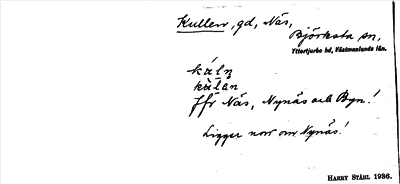 Kullen, gd, Näs,
Björksta sn,
Yttertjurbo hd, Västmanlands län.
kálṇ
kàlan
Jfr Näs, Nynäs och Byn!
Ligger norr om Nynäs!
HARRY STÅHL 1936.